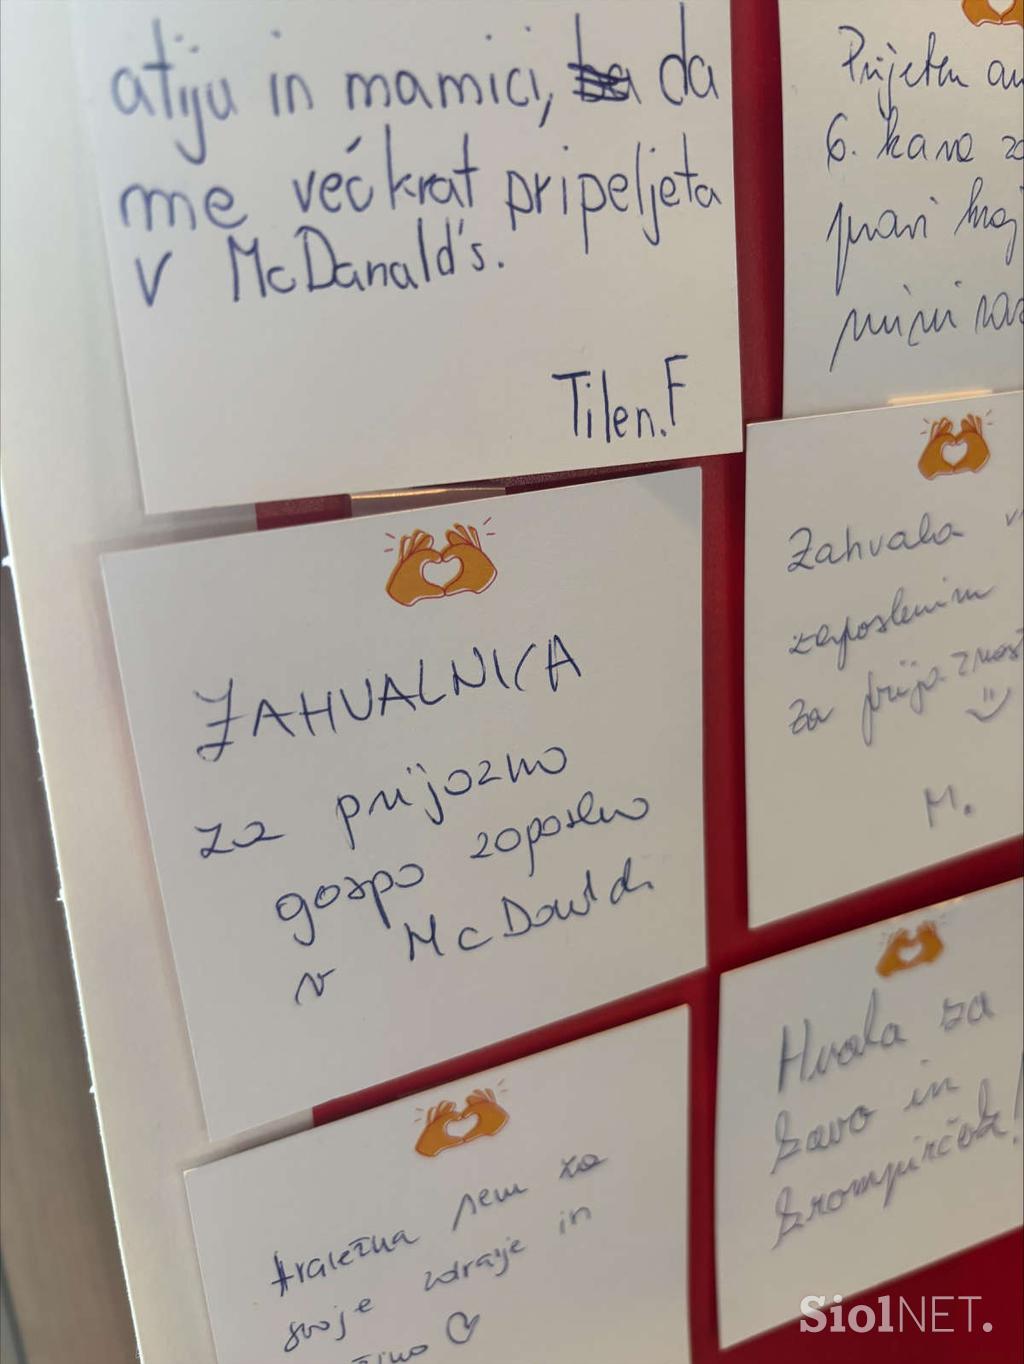 atiju in mamici, da
me večkrat pripeljeta
v McDanald's.
Tilen.F
Prijeten
6. kava
pravi
mimi
ZAHVALNICA
za prijazno
gospo zaposleno
v McDonald
Zahvala
zaposlenim
za prijaznost
M.
Hvala za
kavo in
krompirček!
Hvaležna sem za
svoje zdravje in
SiolNET.